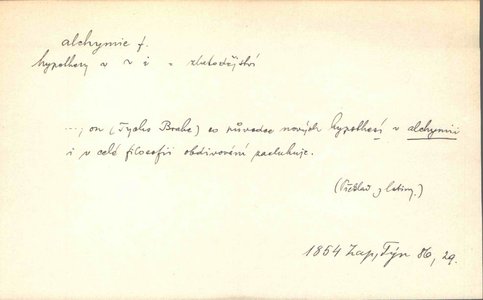 alchymie f.
hypothesy v ~ i - zlatodějství
..., on (Tycho Brahe) co původce nových hypothesí v alchymii
i v celé filosofii obdivování zasluhuje.
(Překlad z latiny.)
1854 Zap, Týn 86, 29.